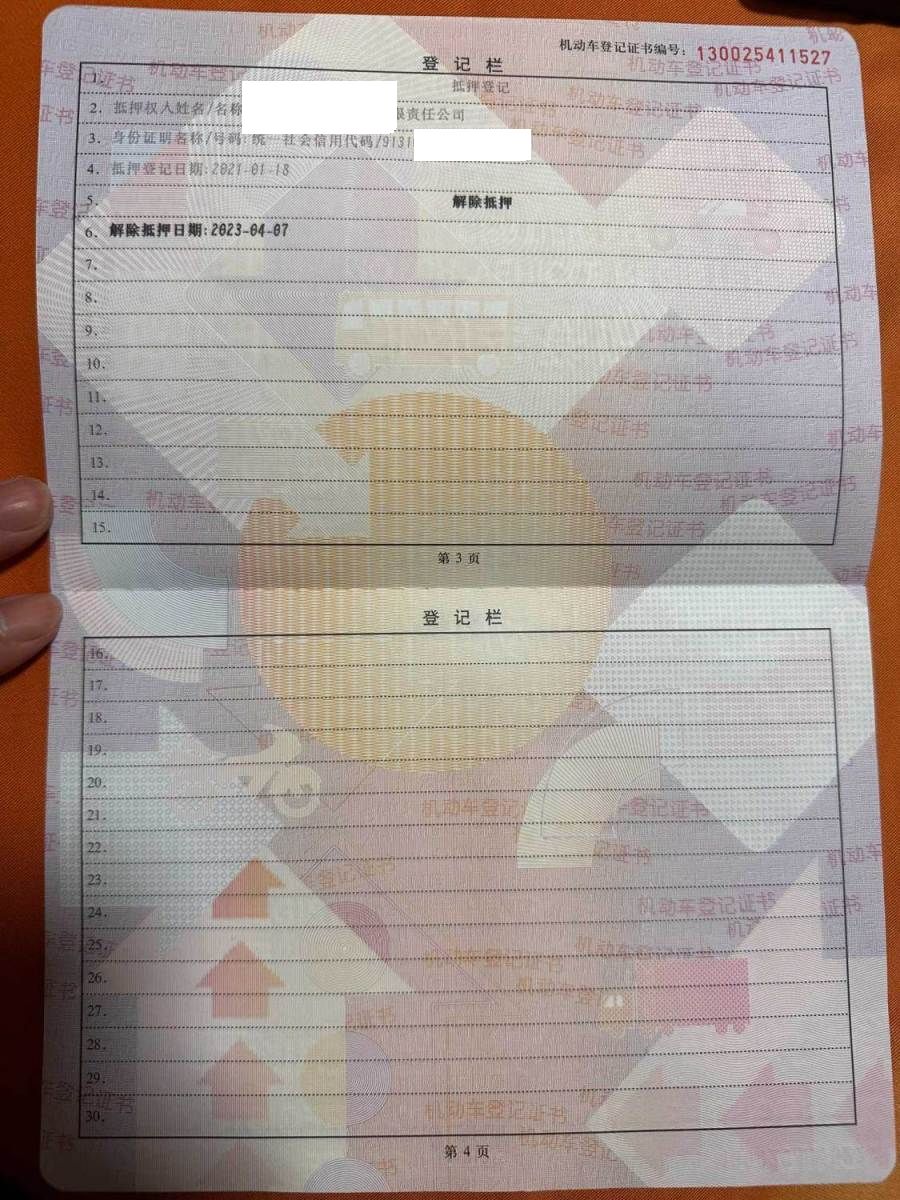 机动车登记证书编号：130025411527
登 记 栏
1. 抵押登记
2. 抵押权人姓名/名称 限责任公司
3. 身份证明名称/号码:统一社会信用代码/9131
4. 抵押登记日期:2021-01-18
5. 解除抵押
6. 解除抵押日期:2023-04-07
7.
8.
9.
10.
11.
12.
13.
14.
15.
第 3 页
登 记 栏
16.
17.
18.
19.
20.
21.
22.
23.
24.
25.
26.
27.
28.
29.
30.
第 4 页